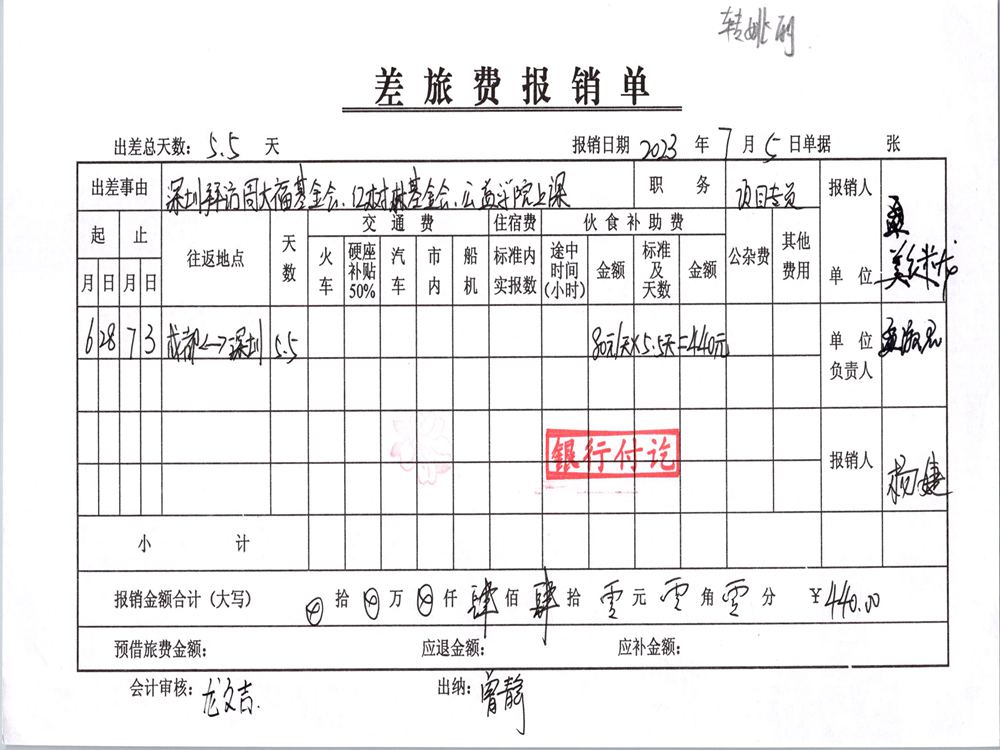 差旅费报销单
出差总天数： 5.5 天 报销日期 2023 年 7 月 5 日单据 张
出差事由 深圳拜访周大福基金会、红树林基金会、公益学院上课 职 务 项目专员 报销人
起 止 往返地点 天数 交通费 住宿费 伙食补助费 公杂费 其他费用
月 日 月 日 火车 硬座补贴50% 汽车 市内 船机 标准内实报数 途中时间(小时) 金额 标准及天数 金额 单 位
6 28 7 3 成都<->深圳 5.5 80元/天×5.5天=440元 单 位负责人
银行付讫
报销人 杨婕
小 计
报销金额合计（大写） ⊗ 拾 ⊗ 万 ⊗ 仟 肆 佰 肆 拾 零 元 零 角 零 分 ￥440.00
预借旅费金额： 应退金额： 应补金额：
会计审核：龙文吉 出纳：曾静